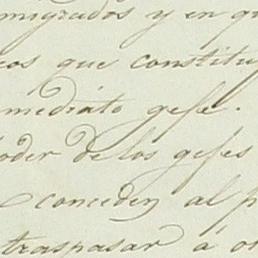 migrados y en qu
cos que constitu
mediáto gefe.
oder de los gefes
conceden al p
traspasar á o